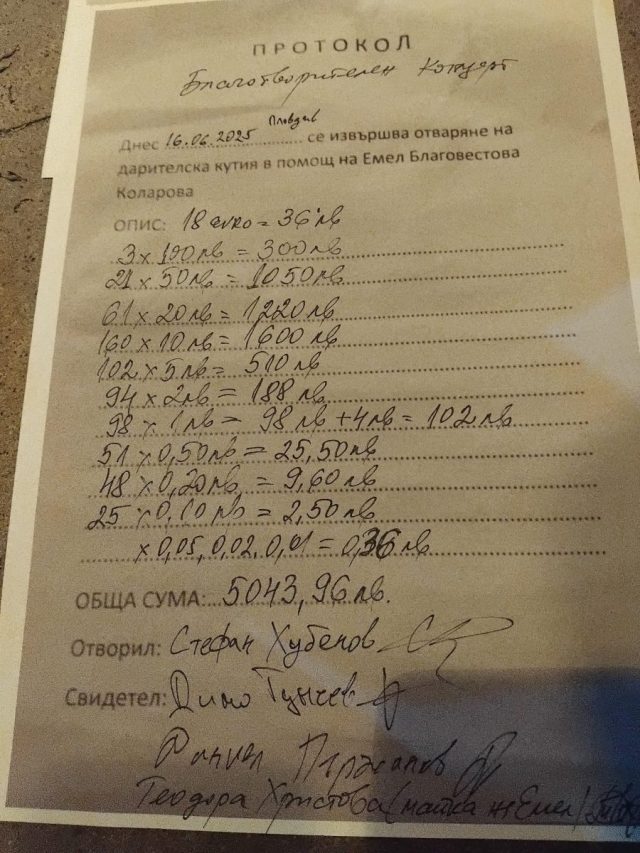 ПРОТОКОЛ
Благотворителен концерт
Пловдив
Днес 16.06.2025 се извършва отваряне на
дарителска кутия в помощ на Емел Благовестова
Коларова
ОПИС: 18 euro = 36 лв
3 x 100 лв = 300 лв
21 x 50 лв = 1050 лв
61 x 20 лв = 1220 лв
160 x 10 лв = 1600 лв
102 x 5 лв = 510 лв
94 x 2 лв = 188 лв
98 x 1 лв = 98 лв + 4 лв = 102 лв
51 x 0,50 лв = 25,50 лв
48 x 0,20 лв = 9,60 лв
25 x 0,10 лв = 2,50 лв
x 0,05, 0,02, 0,01 = 0,36 лв
ОБЩА СУМА: 5043,96 лв.
Отворил: Стефан Хубенов
Свидетел: Димо
Теодора Христова (майка на Емел)